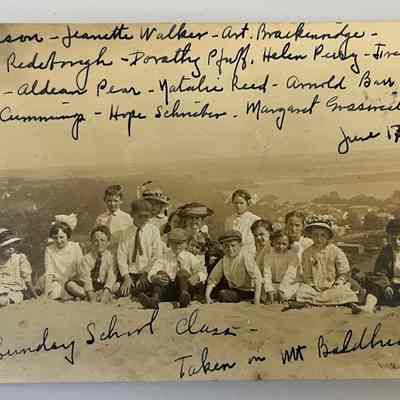 son - Jeanette Walker - Art. Brackenridge -
Redeborgh - Dorothy Pfuff, Helen Perry -
- Aldean Pear - Natalie Reed - Arnold Barr
Cummings - Hope Schriber - Margaret
June 17
Sunday School Class -
Taken on Mt Baldhead